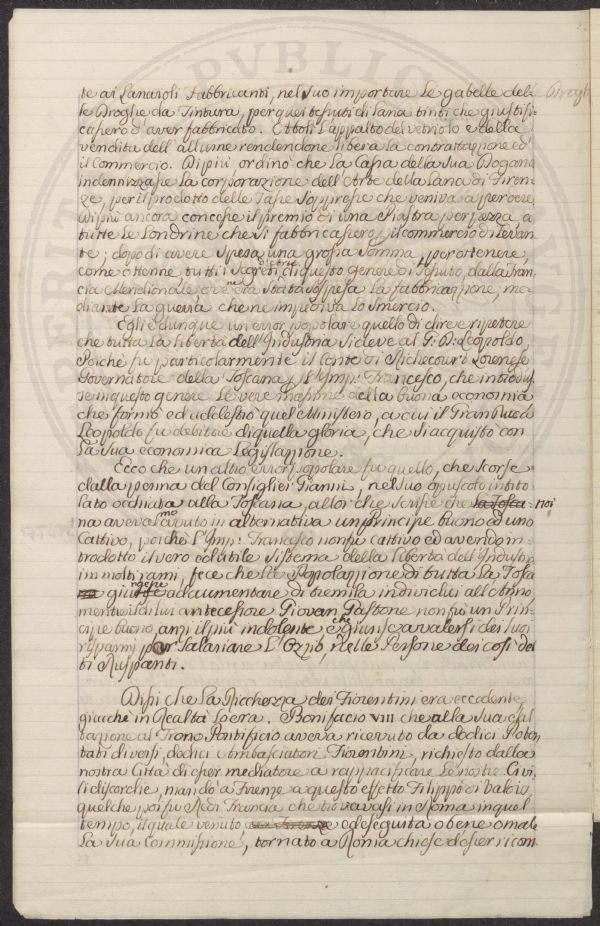 te ai Lanaioli Fabbricanti, nel suo importare le gabelle del=
le Droghe da Tintura, per quei tessuti di lana tinti che giustifi=
casero d'aver fabbricato. Ettolse l'appalto del vetriolo e della
vendita dell'allume rendendone libera la contrattazione ed
il Commercio. Di più ordinò che la Cassa della sua Dogana
indennizzasse la corporazione dell'Arte della Lana di Firen=
ze, per il prodotto delle Tasse soppresse che veniva a perdere,
di più ancora concesse il premio di una Piastra per pezza a
tutte le Londrine che si fabbricassero, per il commercio di Levan=
te; dopo di avere spesa una grossa somma per ottenere,
come ottenne, tutti i segreti di questo genere di Tessuto, dalla Fran=
cia Meridionale ove era stata sospesa la fabbricazione, me=
diante la guerra che ne impediva lo smercio.
Egli è dunque un error popolare quello di dire e ripetere
che tutta la libertà dell'Industria si deve al G: D: Leopoldo,
Poichè fu particolarmente il Conte di Richecourt Lorenese
Governatore della Toscana per l'Imp: Francesco, che introdus=
se in questo genere le vere massime della buona economia
che formò ed addestrò quel Ministero, a cui il Gran Duca
Leopoldo fu debitore di quella gloria, che si acquistò con
la sua economica Legislazione.
Ecco che un altro error popolare fu quello, che scorse
dalla penna del Consiglier Gianni, nel suo opuscolo intito=
lato occhiata alla Toscana, allor che scrisse che la Tosca= noi
na aveva=mo avuto in alternativa un principe buono ed uno
Cattivo, poichè l'Imp: Francesco non fu cattivo ed avendo in=
trodotto il vero ed utile sistema della libertà dell'Industria
in molti rami, fece che la Popolazione di tutta la Tosca=
na giungesse ad aumentare di tremila individui all'anno,
mentre il di lui antecessore Giovan Gastone non fu un Prin=
cipe buono, anzi il più indolente che giunse a valersi dei suoi
risparmi per salariare l'Ozio, nelle Persone dei così det=
ti Ruspanti.
Dissi che la Ricchezza dei Fiorentini era eccedente,
giacchè in Realtà lo era. Bonifacio VIII che alla sua esal=
tazione al Trono Pontificio aveva ricevuto da dodici Poten=
tati diversi, dodici Ambasciatori Fiorentini, richiesto dalla
nostra Città di esser mediatore a rappacificare le nostre Civi=
li discordie, mandò a Firenze a questo effetto Filippo di Valois
quel che poi fu Re di Francia che trovavasi in Roma in quel
tempo, il quale venuto ed eseguita o bene o male
la sua Commissione, tornato a Roma chiese d'esser ricom=